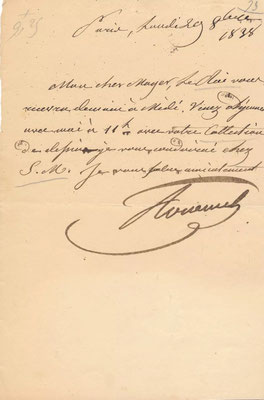 Paris, Lundi 29 8bre
1838
Mon cher Mayer, Le Roi vous
recevra demain à Midi. Venez déjeuner
avec moi à 11h avec votre Collection
de dessins je vous conduirai chez
S. M. Je vous salue amicalement